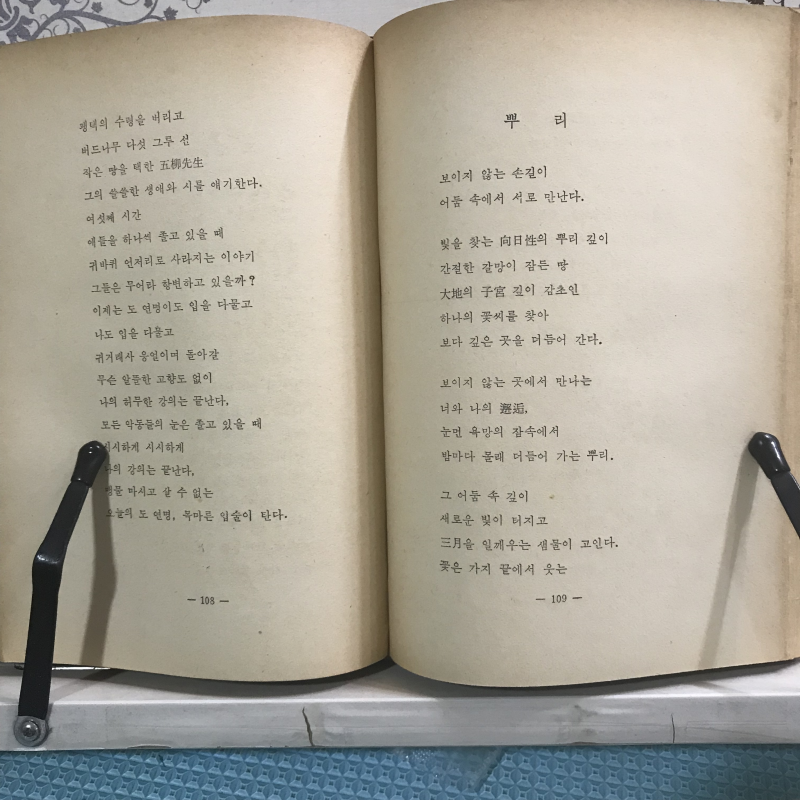 평택의 수령을 버리고
버드나무 다섯 그루 선
작은 땅을 택한 五柳先生
그의 쓸쓸한 생애와 시를 얘기한다.
여섯째 시간
애들을 하나씩 졸고 있을 때
귀바퀴 언저리로 사라지는 이야기
그들은 무어라 항변하고 있을까?
이제는 도 연명이도 입을 다물고
나도 입을 다물고
귀거래사 웅얼이며 돌아갈
무슨 알뜰한 고향도 없이
나의 허무한 강의는 끝난다,
모든 악동들의 눈은 졸고 있을 때
시시하게 시시하게
나의 강의는 끝난다,
맹물 마시고 살 수 없는
오늘의 도 연명, 목마른 입술이 탄다.
— 108 —
뿌 리
보이지 않는 손길이
어둠 속에서 서로 만난다.
빛을 찾는 向日性의 뿌리 깊이
간절한 갈망이 잠든 땅
大地의 子宮 깊이 감초인
하나의 꽃씨를 찾아
보다 깊은 곳을 더듬어 간다.
보이지 않는 곳에서 만나는
너와 나의 邂逅,
눈먼 욕망의 잠속에서
밤마다 몰래 더듬어 가는 뿌리.
그 어둠 속 깊이
새로운 빛이 터지고
三月을 일깨우는 샘물이 고인다.
꽃은 가지 끝에서 웃는
— 109 —